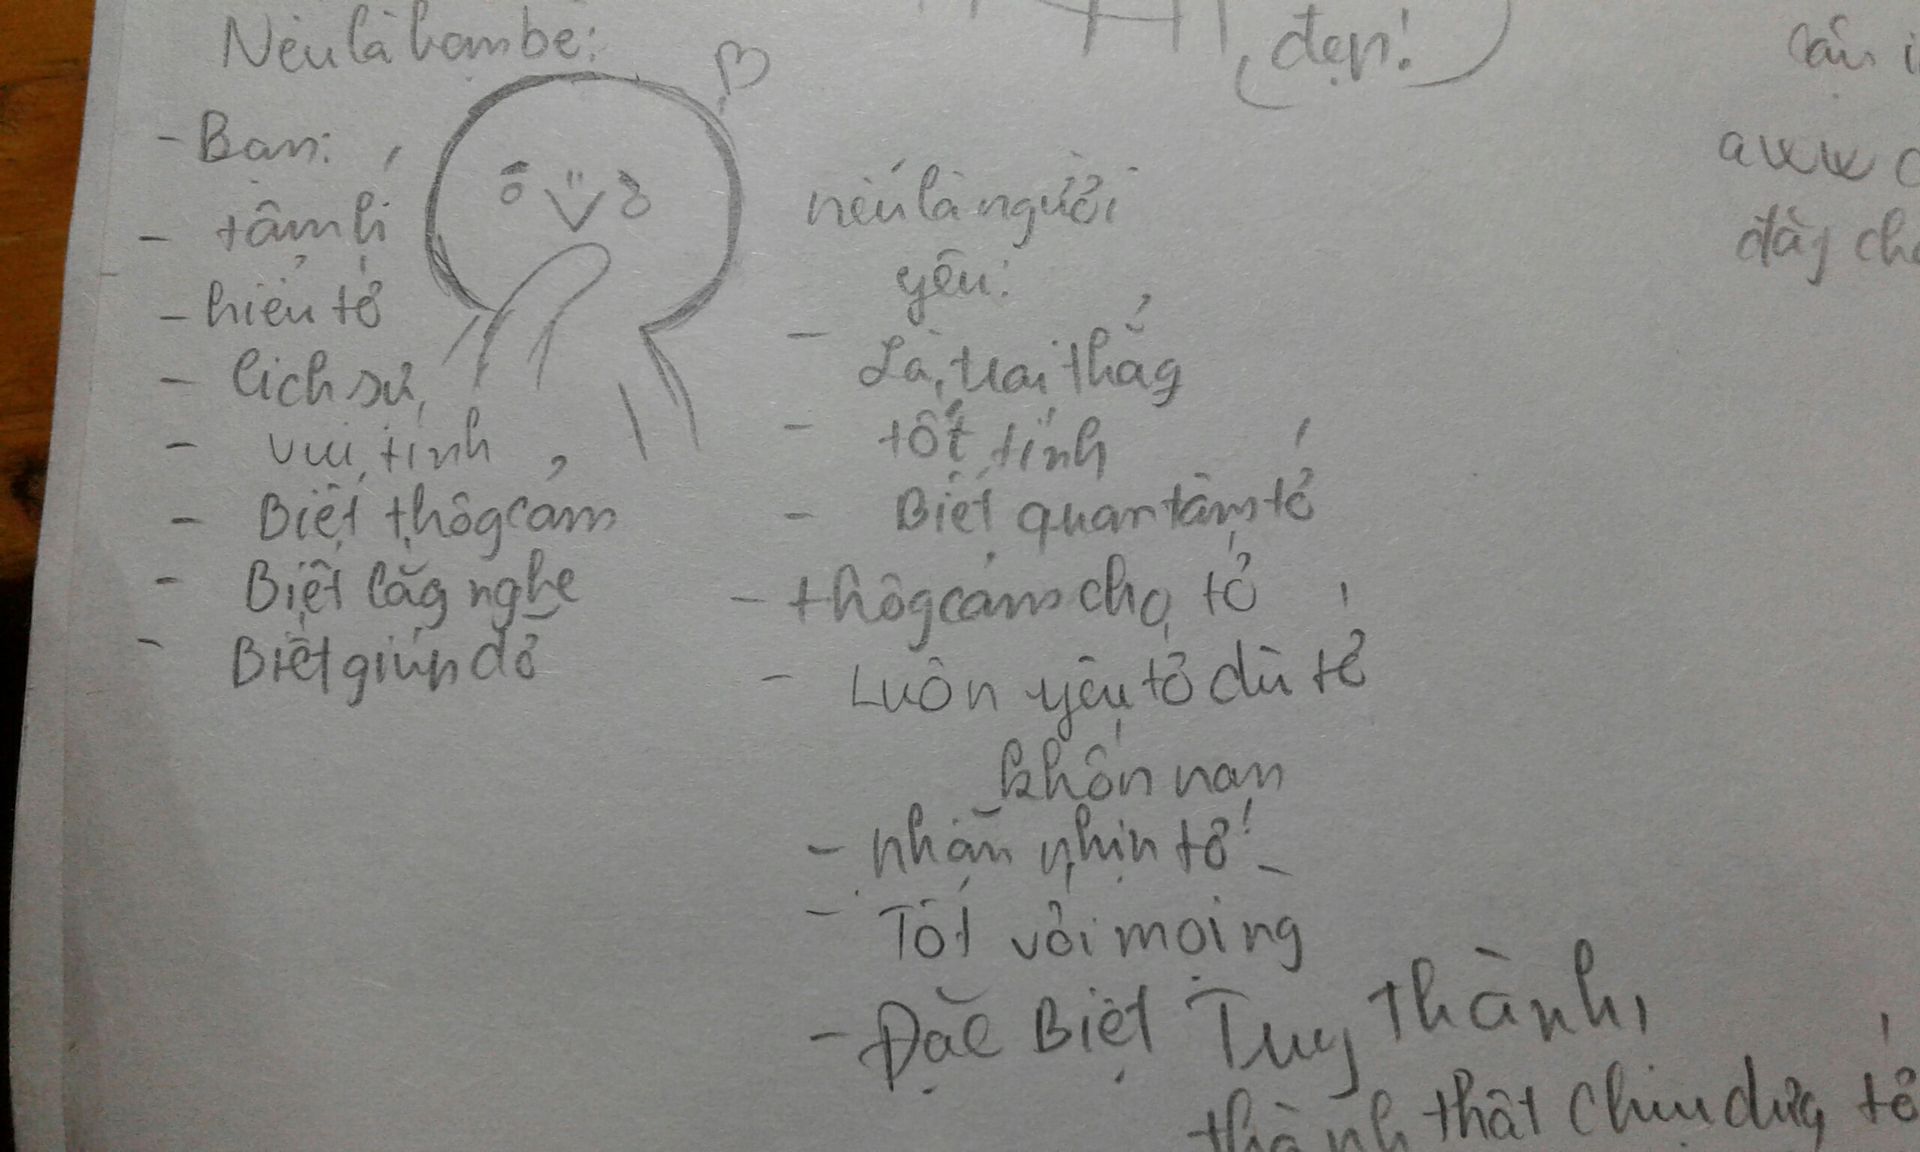 Nếu là bạn bè:
- Bạn:
- tâm lí
- hiểu tớ
- lịch sự
- vui tính
- Biết thôg cảm
- Biết lắg nghe
- Biết giúp đỡ
đẹp!
nếu là người
yêu:
- Là trai thẳg
- tốt tính
- Biết quan tâm tớ
- thôg cảm cho tớ
- Luôn yêu tớ dù tớ
khốn nạn
- nhẫn nhịn tớ
- Tốt với mọi ng
- Đặc Biệt Tuy Thành,
thành thật chịu đựg tớ
cần
aww
đầy